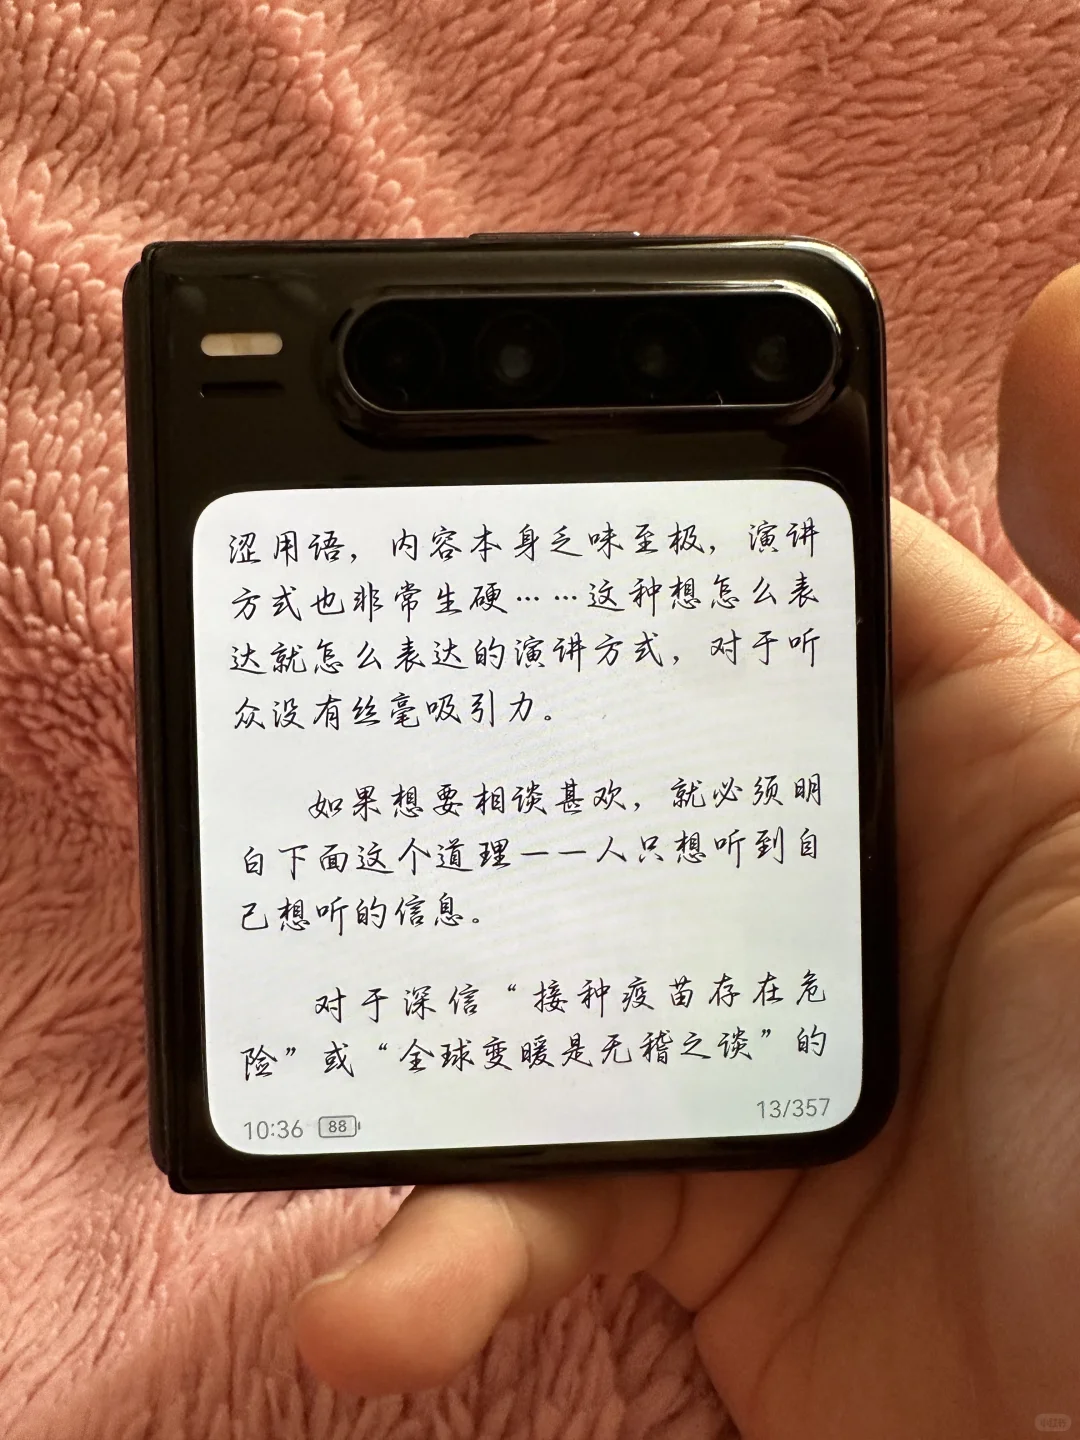 涩用语，内容本身乏味至极，演讲
方式也非常生硬……这种想怎么表
达就怎么表达的演讲方式，对于听
众没有丝毫吸引力。
如果想要相谈甚欢，就必须明
白下面这个道理——人只想听到自
己想听的信息。
对于深信“接种疫苗存在危
险”或“全球变暖是无稽之谈”的
10:36 88 13/357
小红书